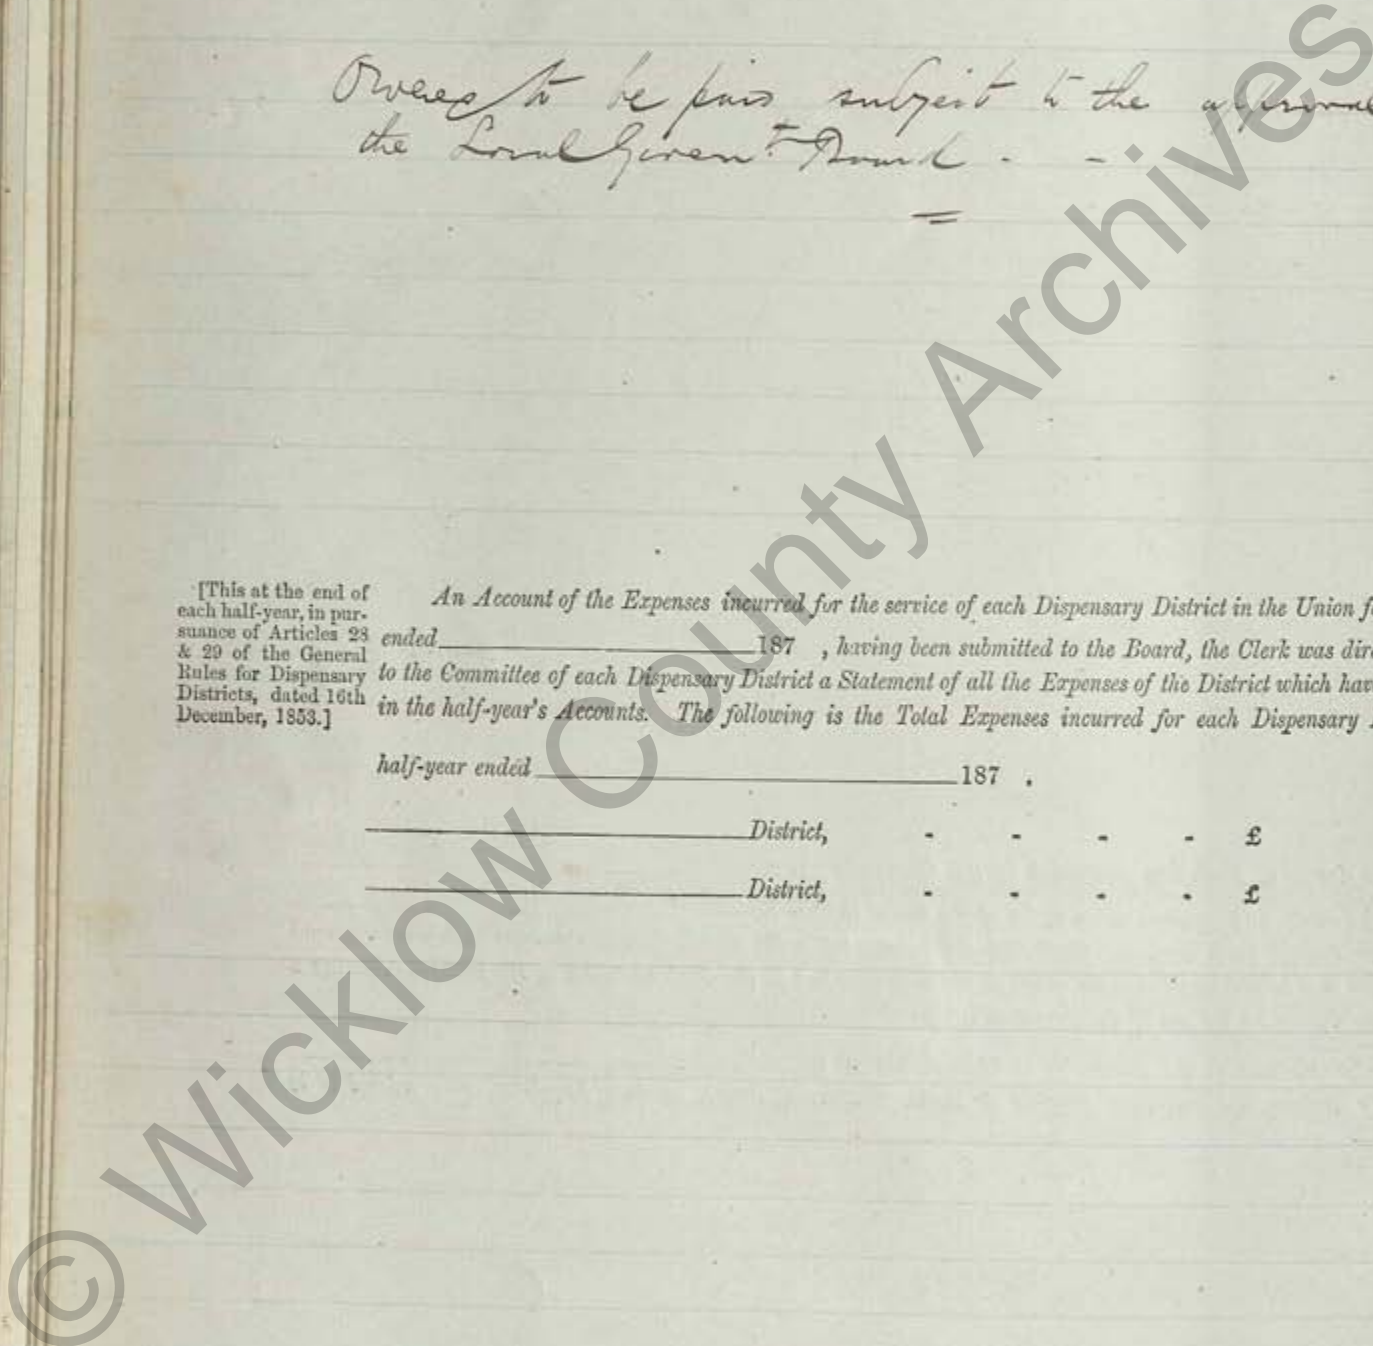 Ordered to be paid subject to the approval
the Local Governt. Board . -
[This at the end of
each half-year, in pur-
suance of Articles 28
& 29 of the General
Rules for Dispensary
Districts, dated 16th
December, 1853.]
An Account of the Expenses incurred for the service of each Dispensary District in the Union f
ended 187 , having been submitted to the Board, the Clerk was dir
to the Committee of each Dispensary District a Statement of all the Expenses of the District which hav
in the half-year's Accounts. The following is the Total Expenses incurred for each Dispensary
half-year ended 187 .
District, - - - - £
District, - - - - £
© Wicklow County Archives